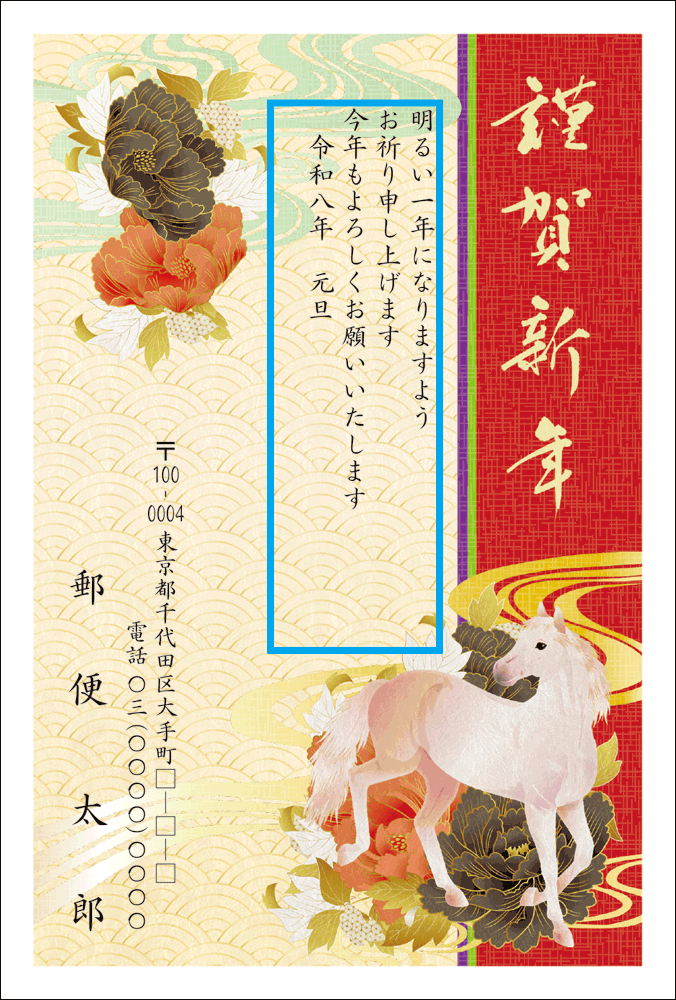 謹賀新年
明るい一年になりますよう
お祈り申し上げます
今年もよろしくお願いいたします
令和八年　元旦
〒100-0004 東京都千代田区大手町□―□―□
電話 〇三(〇〇〇〇)〇〇〇〇
郵便太郎